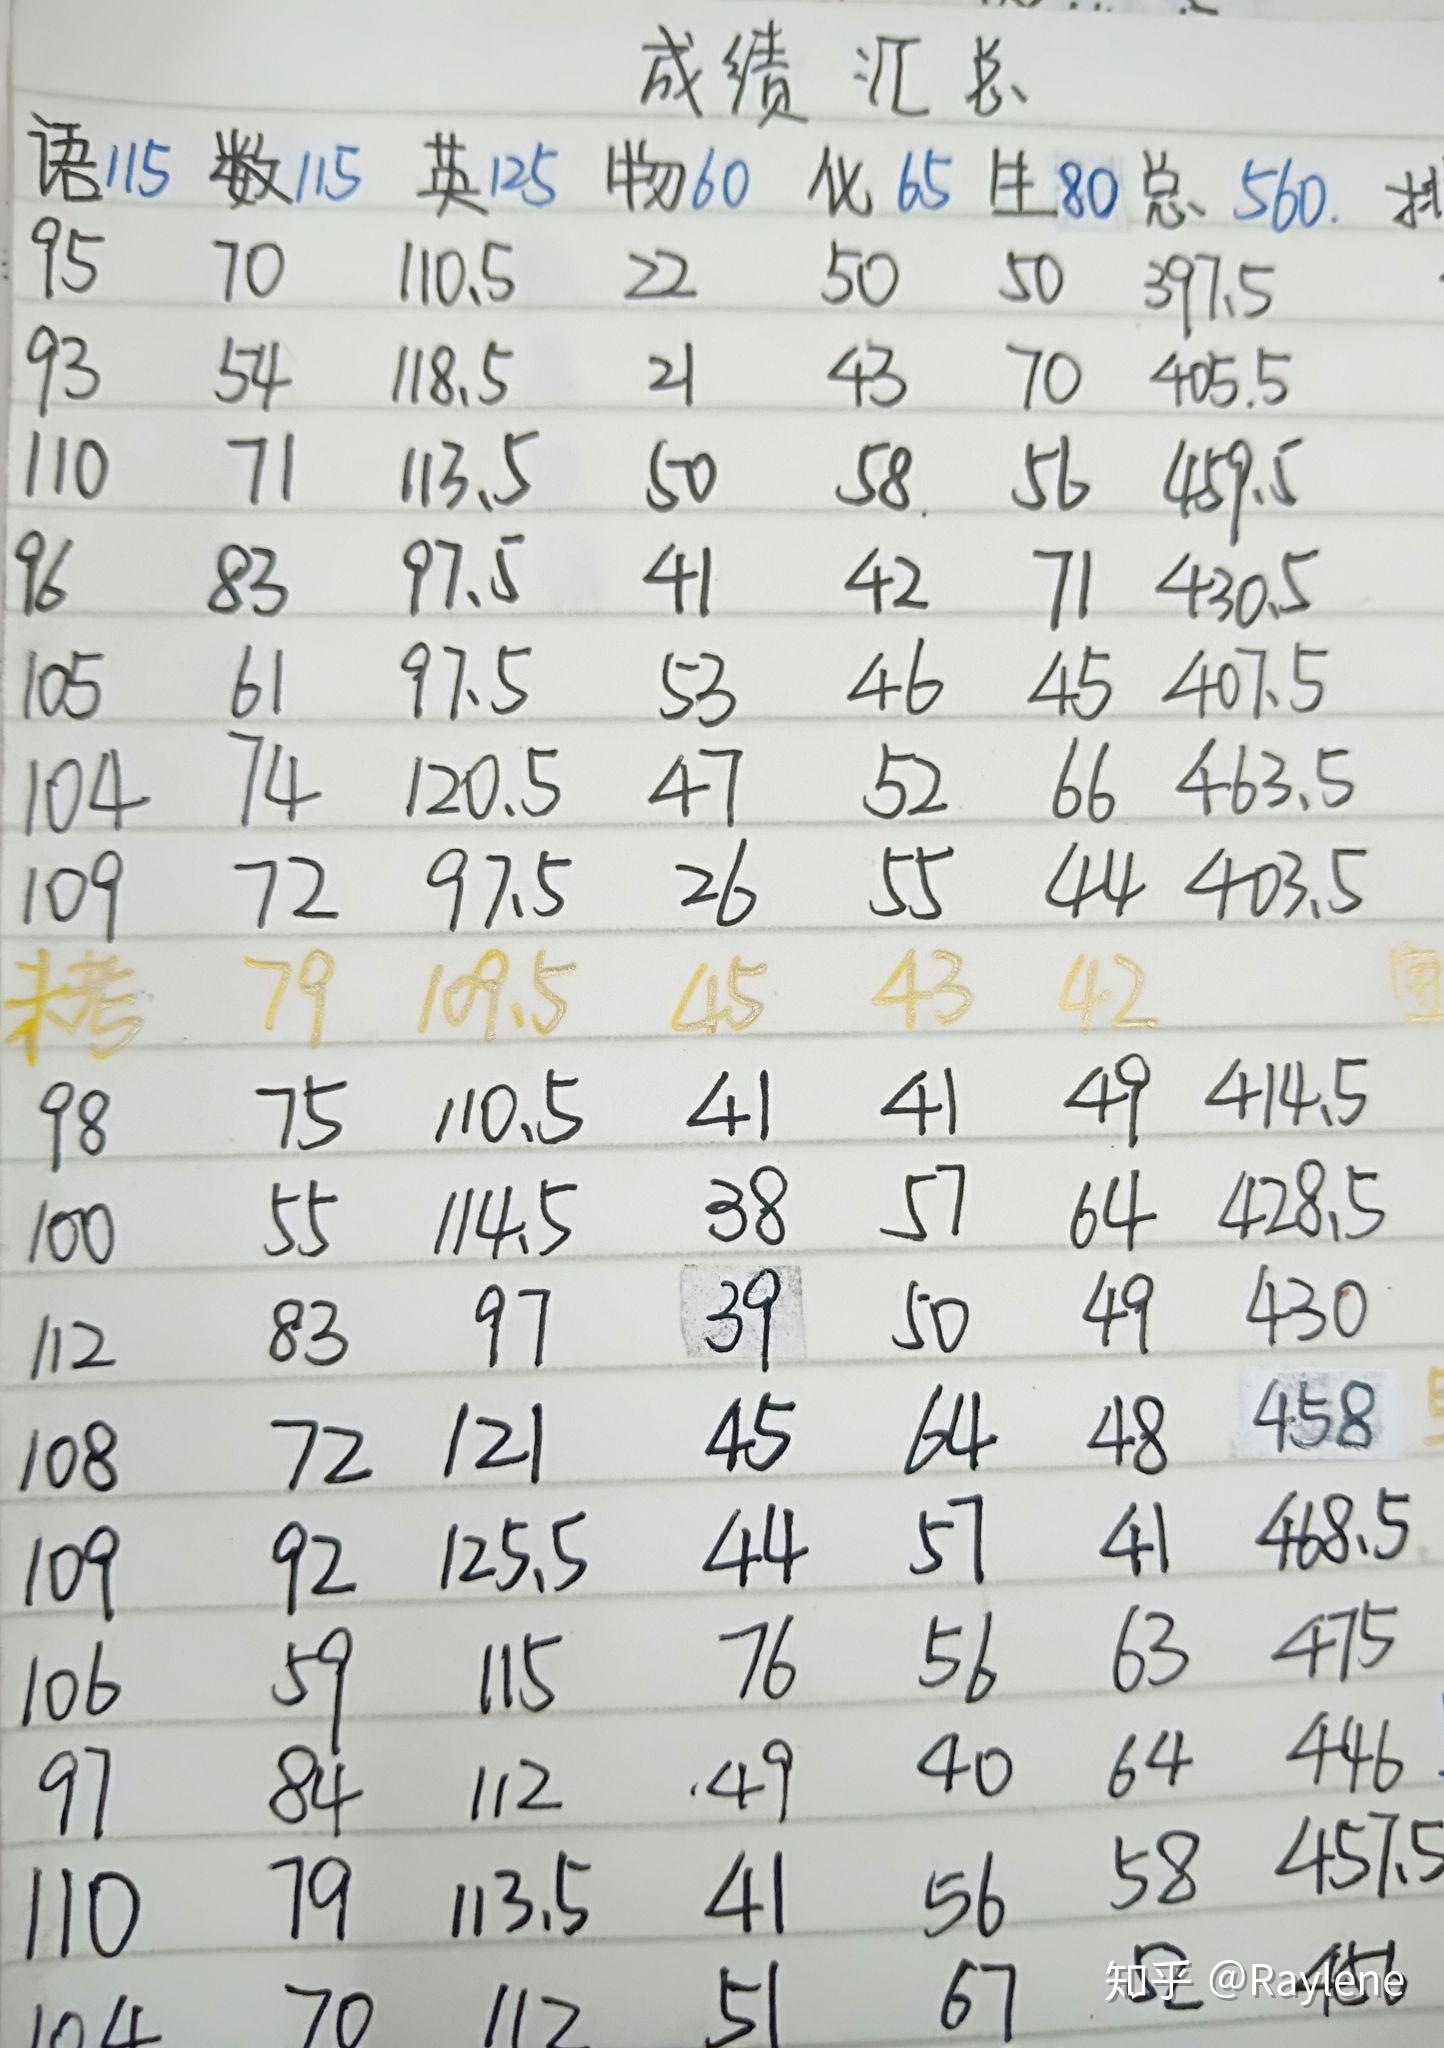 成绩 汇总
语115 数115 英125 物60 化65 生80 总560.
95 70 110.5 22 50 50 397.5
93 54 118.5 21 43 70 405.5
110 71 113.5 50 58. 56 459.5
96 83 97.5 41 42 71 430.5
105 61 97.5 53 46 45 407.5
104 74 120.5 47 52 66 463.5
109 72 97.5 26 55 44 403.5
未考 79 109.5 45 43 42
98 75 110.5 41 41 49 414.5
100 55 114.5 38 57 64 428.5
112 83 97 39 50 49 430
108 72 121 45 64 48 458
109 92 125.5 44 57 41 468.5
106 59 115 76 56 63 475
97 84 112 49 40 64 446
110 79 113.5 41 56 58 457.5
104 70 112 51 67 52 456
知乎 @Raylene